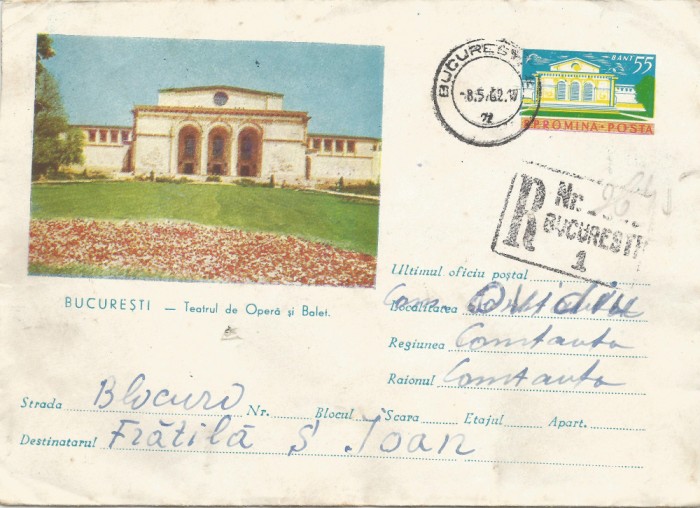 BUCUREȘTI
-8.5.62.17
72
BANI 55
R.P.ROMINA·POSTA
R Nr.
BUCUREȘTI
1
BUCUREȘTI — Teatrul de Operă și Balet.
Ultimul oficiu poștal
Localitatea com Ovidiu
Regiunea Constanta
Raionul Constanta
Strada Blocuri Nr. Blocul Scara Etajul Apart.
Destinatarul Frătilă Ș Ioan